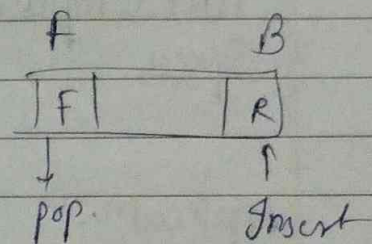 F B
F R
pop. Insert